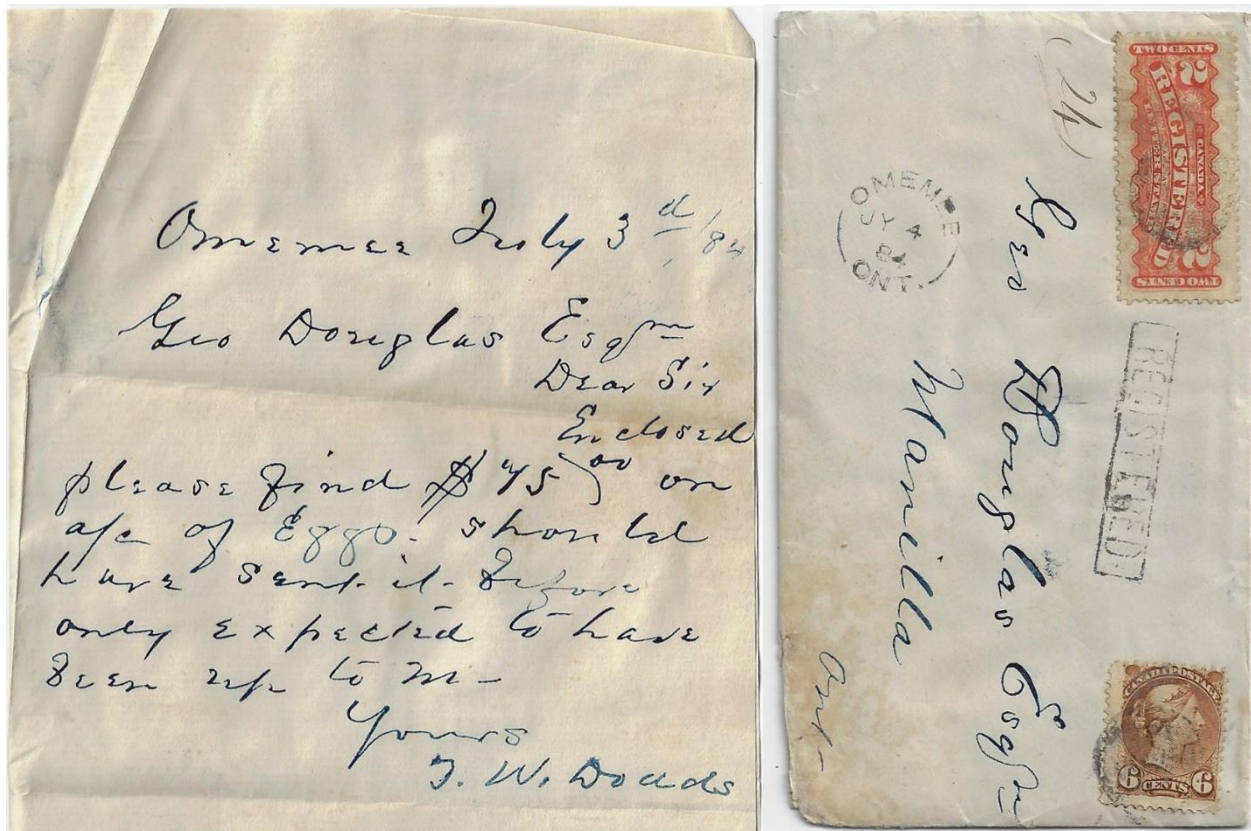 Omemee July 3d/84
Geo Douglas Esqr
Dear Sir
Enclosed
please find $75.00 on
a/c of Eggs. should
have sent it before
only expected to have
been up to M-
Yours
J. W. Dodds
TWO CENTS
2 REGISTERED 2
CANADA
TWO CENTS
(24)
OMEMEE
JY 4
ONT.
REGISTERED
Geo Douglas Esqr
Manilla
Ont-
CANADA POSTAGE
6 CENTS 6